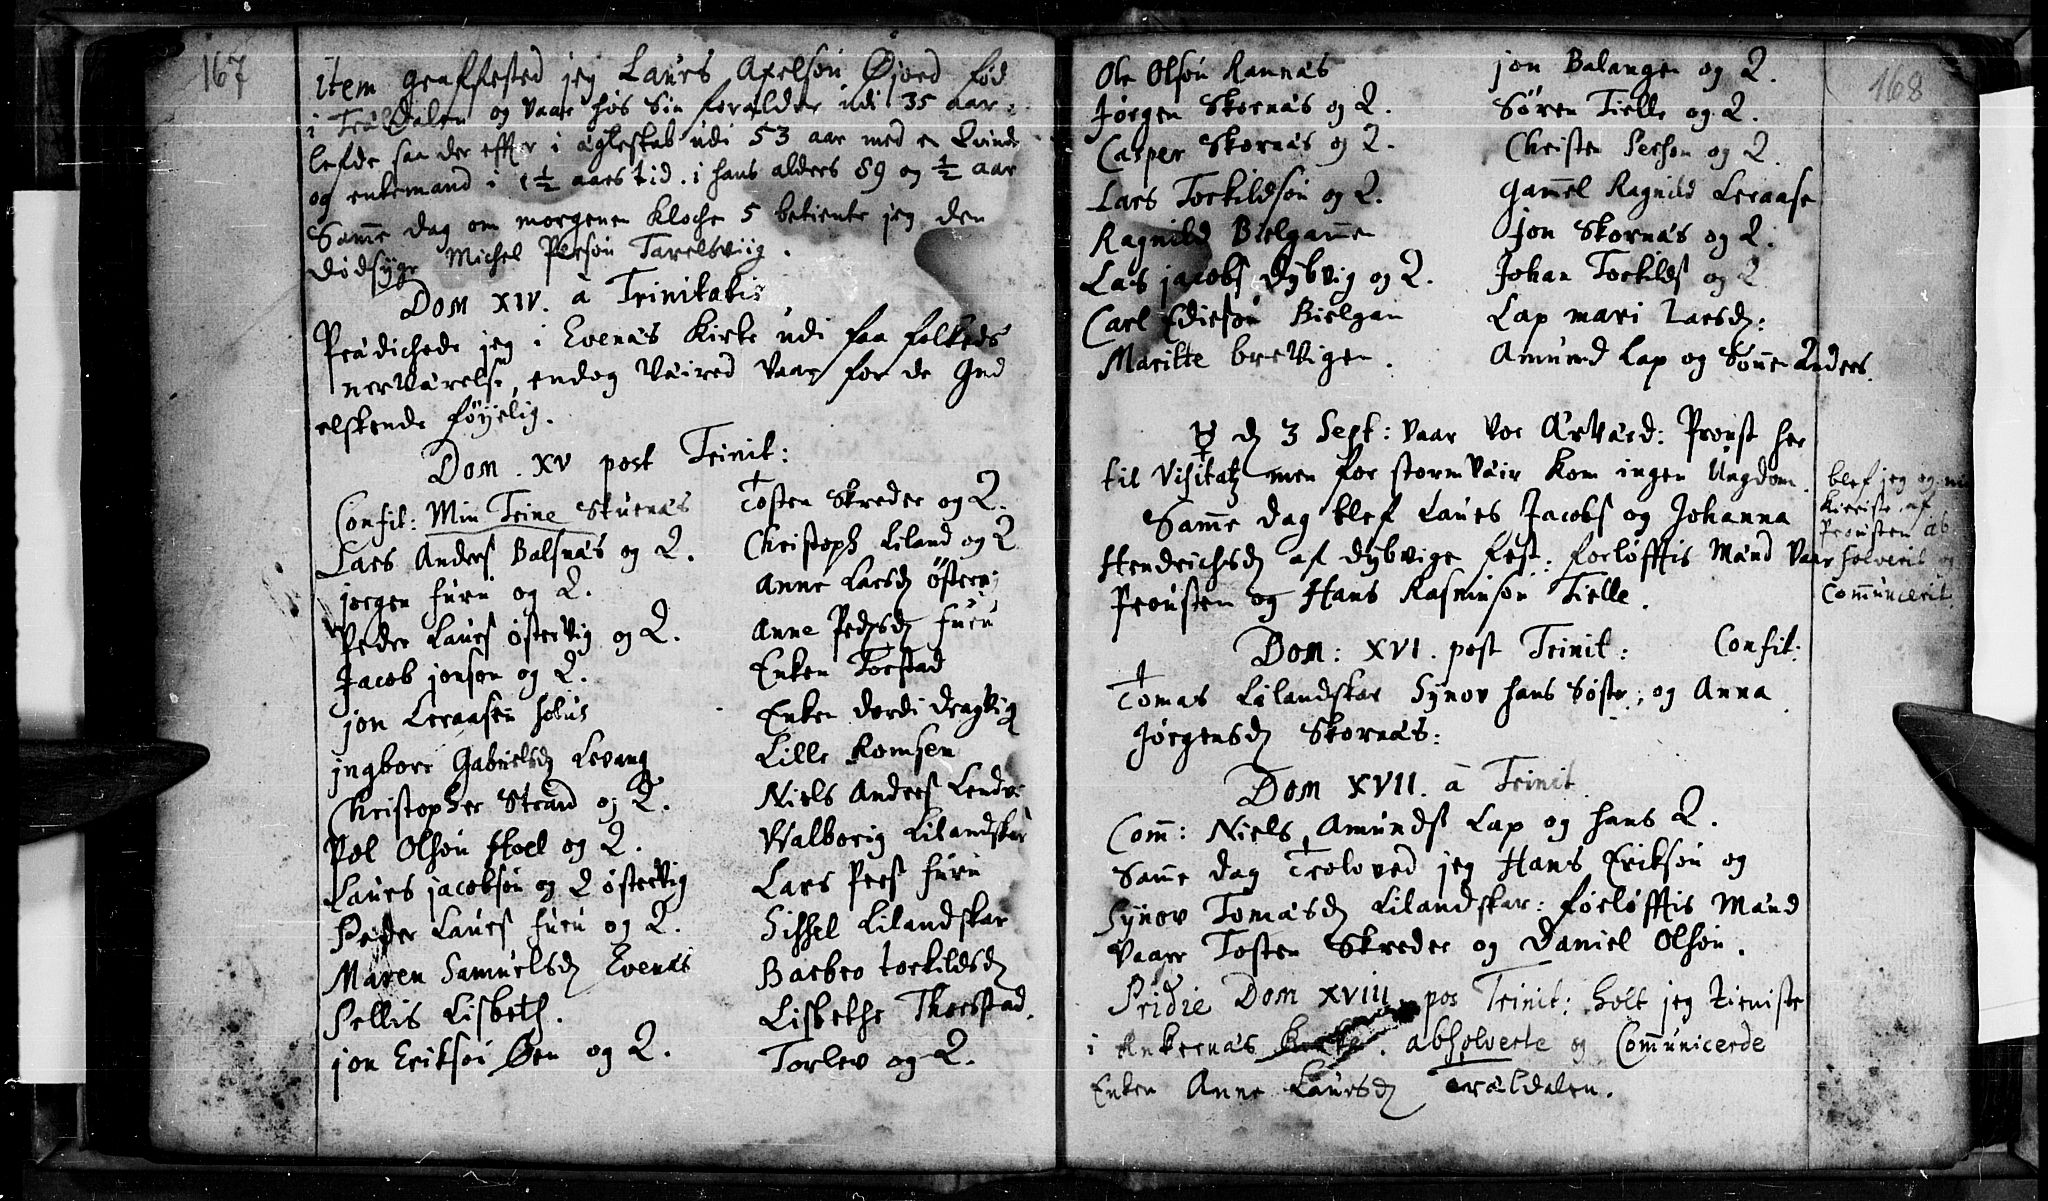 167
item graffested jeg Laurs Axelsøn Øjord fød
i Trældalen og vaar hos Sin forældre udi 35 aar.
lefde saa der effter i ægteskab udi 53 aar med en Qvinde
og enkemand i 1½ aars tid. i hans alders 89 og ½ aar
Samme dag om morgenen kloche 5 betiente jeg den
dødsyge Michel Persøn Tarelsviig.
Dom XIV. a Trinitatis
Prædichede jeg i Evenæs Kirke udi faa folkeds
nerværelse, endog Væired vaar for de Gud
elskende føyelig.
Dom. XV post Trinit:
Confit: Min Trine Stuenæs
Lars Anders Balsnæs og Q.
jørgen furu og Q.
Peder Laurs Østervig og Q.
Jacob jonsøn og Q.
jon Leraasen
ingbore Gabrielsd Levang
Christopher Strand og Q.
Pol Olsøn og Q.
Laurs jacobsøn og Q Østervig
Peder Laurs furu og Q.
Maren Samuelsd Evenæs
Pellis Lisbeth.
jon Eriksøn Øen og Q.
Tosten Skreder og Q.
Christoph Liland og Q
Anne Larsd Østerv:
Anne Pedrsd furu
Enken Torstad
Enken dordi dragvig
Lille Romsen
Niels Anders Lendv
Walborig Lilandskar
Lars Pers furu
Sissel Lilandskar
Barbro torkildsd
Lisbethe Thorstad.
Torlev og Q.
168
Ole Olsøn Ramnæs
Jørgen Skornæs og Q.
Casper Skornæs og Q.
Lars Torkildsøn og Q.
Ragnild Bielgamme
Lars jacobs dybvig og Q.
Carl Edissøn Bielgam
Maritte brevigen.
jon Balangen og Q.
Søren Tielle og Q.
Christen Persøn og Q.
Gammel Ragnild Leraase
Jon Skornæs og Q.
Johan Torkilds og Q
Lap mari Larsd:
Amund Lap og Sønn Anders.
☿ d 3 Sept: vaar vor Ærværd: Proust her
til Visitatz men for stormvæir kom ingen Ungdom.
Samme dag blef Laurs Jacobs og Johanna
Hendrichsd af dybvige fest: forløfftis Mænd vaar
Prousten og Hans Rasmusøn Tielle.
blef jeg og min
Kiæriste af
Prousten ab
solverit og
Communcerit.
Dom: XVI. post Trinit: Confit:
Tomas Lilandskar Synov hans Søster; og Anna
Jørgensd Skornæs:
Dom XVII. a Trinit
Com: Niels Amunds Lap og hans Q.
Samme dag Troloved jeg Hans Eriksøn og
Synov Tomasd Lilandskar: forløfftis Mænd
vaare Tosten Skreder og Daniel Olsøn.
Pridie Dom XVIII pos Trinit: holt jeg tieniste
i Ankernæs Kirke. absolverte og Communicerde
Enken Anne Laursd Trældalen.